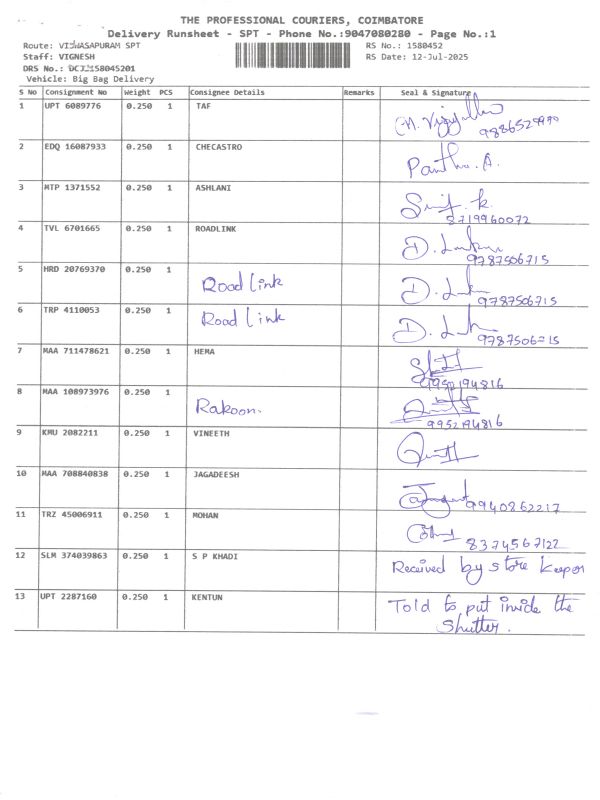 THE PROFESSIONAL COURIERS, COIMBATORE
Delivery Runsheet - SPT - Phone No.:9047080280 - Page No.:1
Route: VISWASAPURAM SPT RS No.: 1580452
Staff: VIGNESH RS Date: 12-Jul-2025
DRS No.: 158045201
Vehicle: Big Bag Delivery
S No Consignment No Weight PCS Consignee Details Remarks Seal & Signature
1 UPT 6089776 0.250 1 TAF
2 EDQ 16087933 0.250 1 CHECASTRO A.
3 MTP 1371552 0.250 1 ASHLANI k.
8719960072
4 TVL 6701665 0.250 1 ROADLINK D.
9787506715
5 HRD 20769370 0.250 1 Road link D.
9787506715
6 TRP 4110053 0.250 1 Road link D.
7 MAA 711478621 0.250 1 HEMA
9952194816
8 MAA 108973976 0.250 1 Rakoon.
9952194816
9 KMU 2082211 0.250 1 VINEETH
10 MAA 708840838 0.250 1 JAGADEESH 9940862217
11 TRZ 45006911 0.250 1 MOHAN 8374567122
12 SLM 374039863 0.250 1 S P KHADI Received by store keeper
13 UPT 2287160 0.250 1 KENTUN Told to put inside the
Shutter.